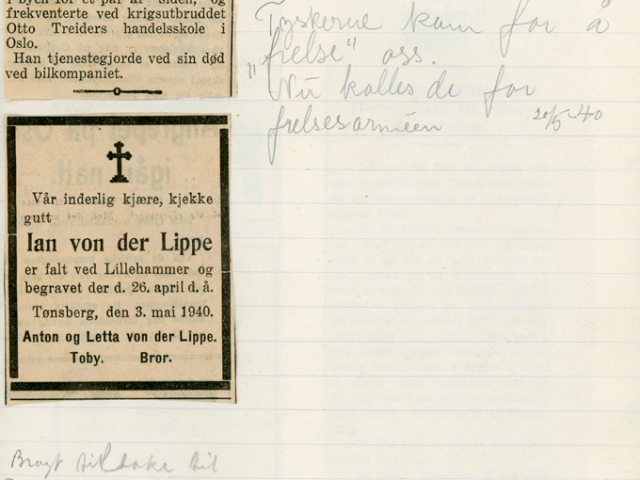 frekventerte ved krigsutbruddet
Otto Treiders handelsskole i
Oslo.
Han tjenestegjorde ved sin død
ved bilkompaniet.
Vår inderlig kjære, kjekke
gutt
Ian von der Lippe
er falt ved Lillehammer og
begravet der d. 26. april d. å.
Tønsberg, den 3. mai 1940.
Anton og Letta von der Lippe.
Toby. Bror.
Tyskerne kom for å
„frelse" oss.
Nu kalles de for
frelsesarméen 20/5-40
Bragt tilbake til